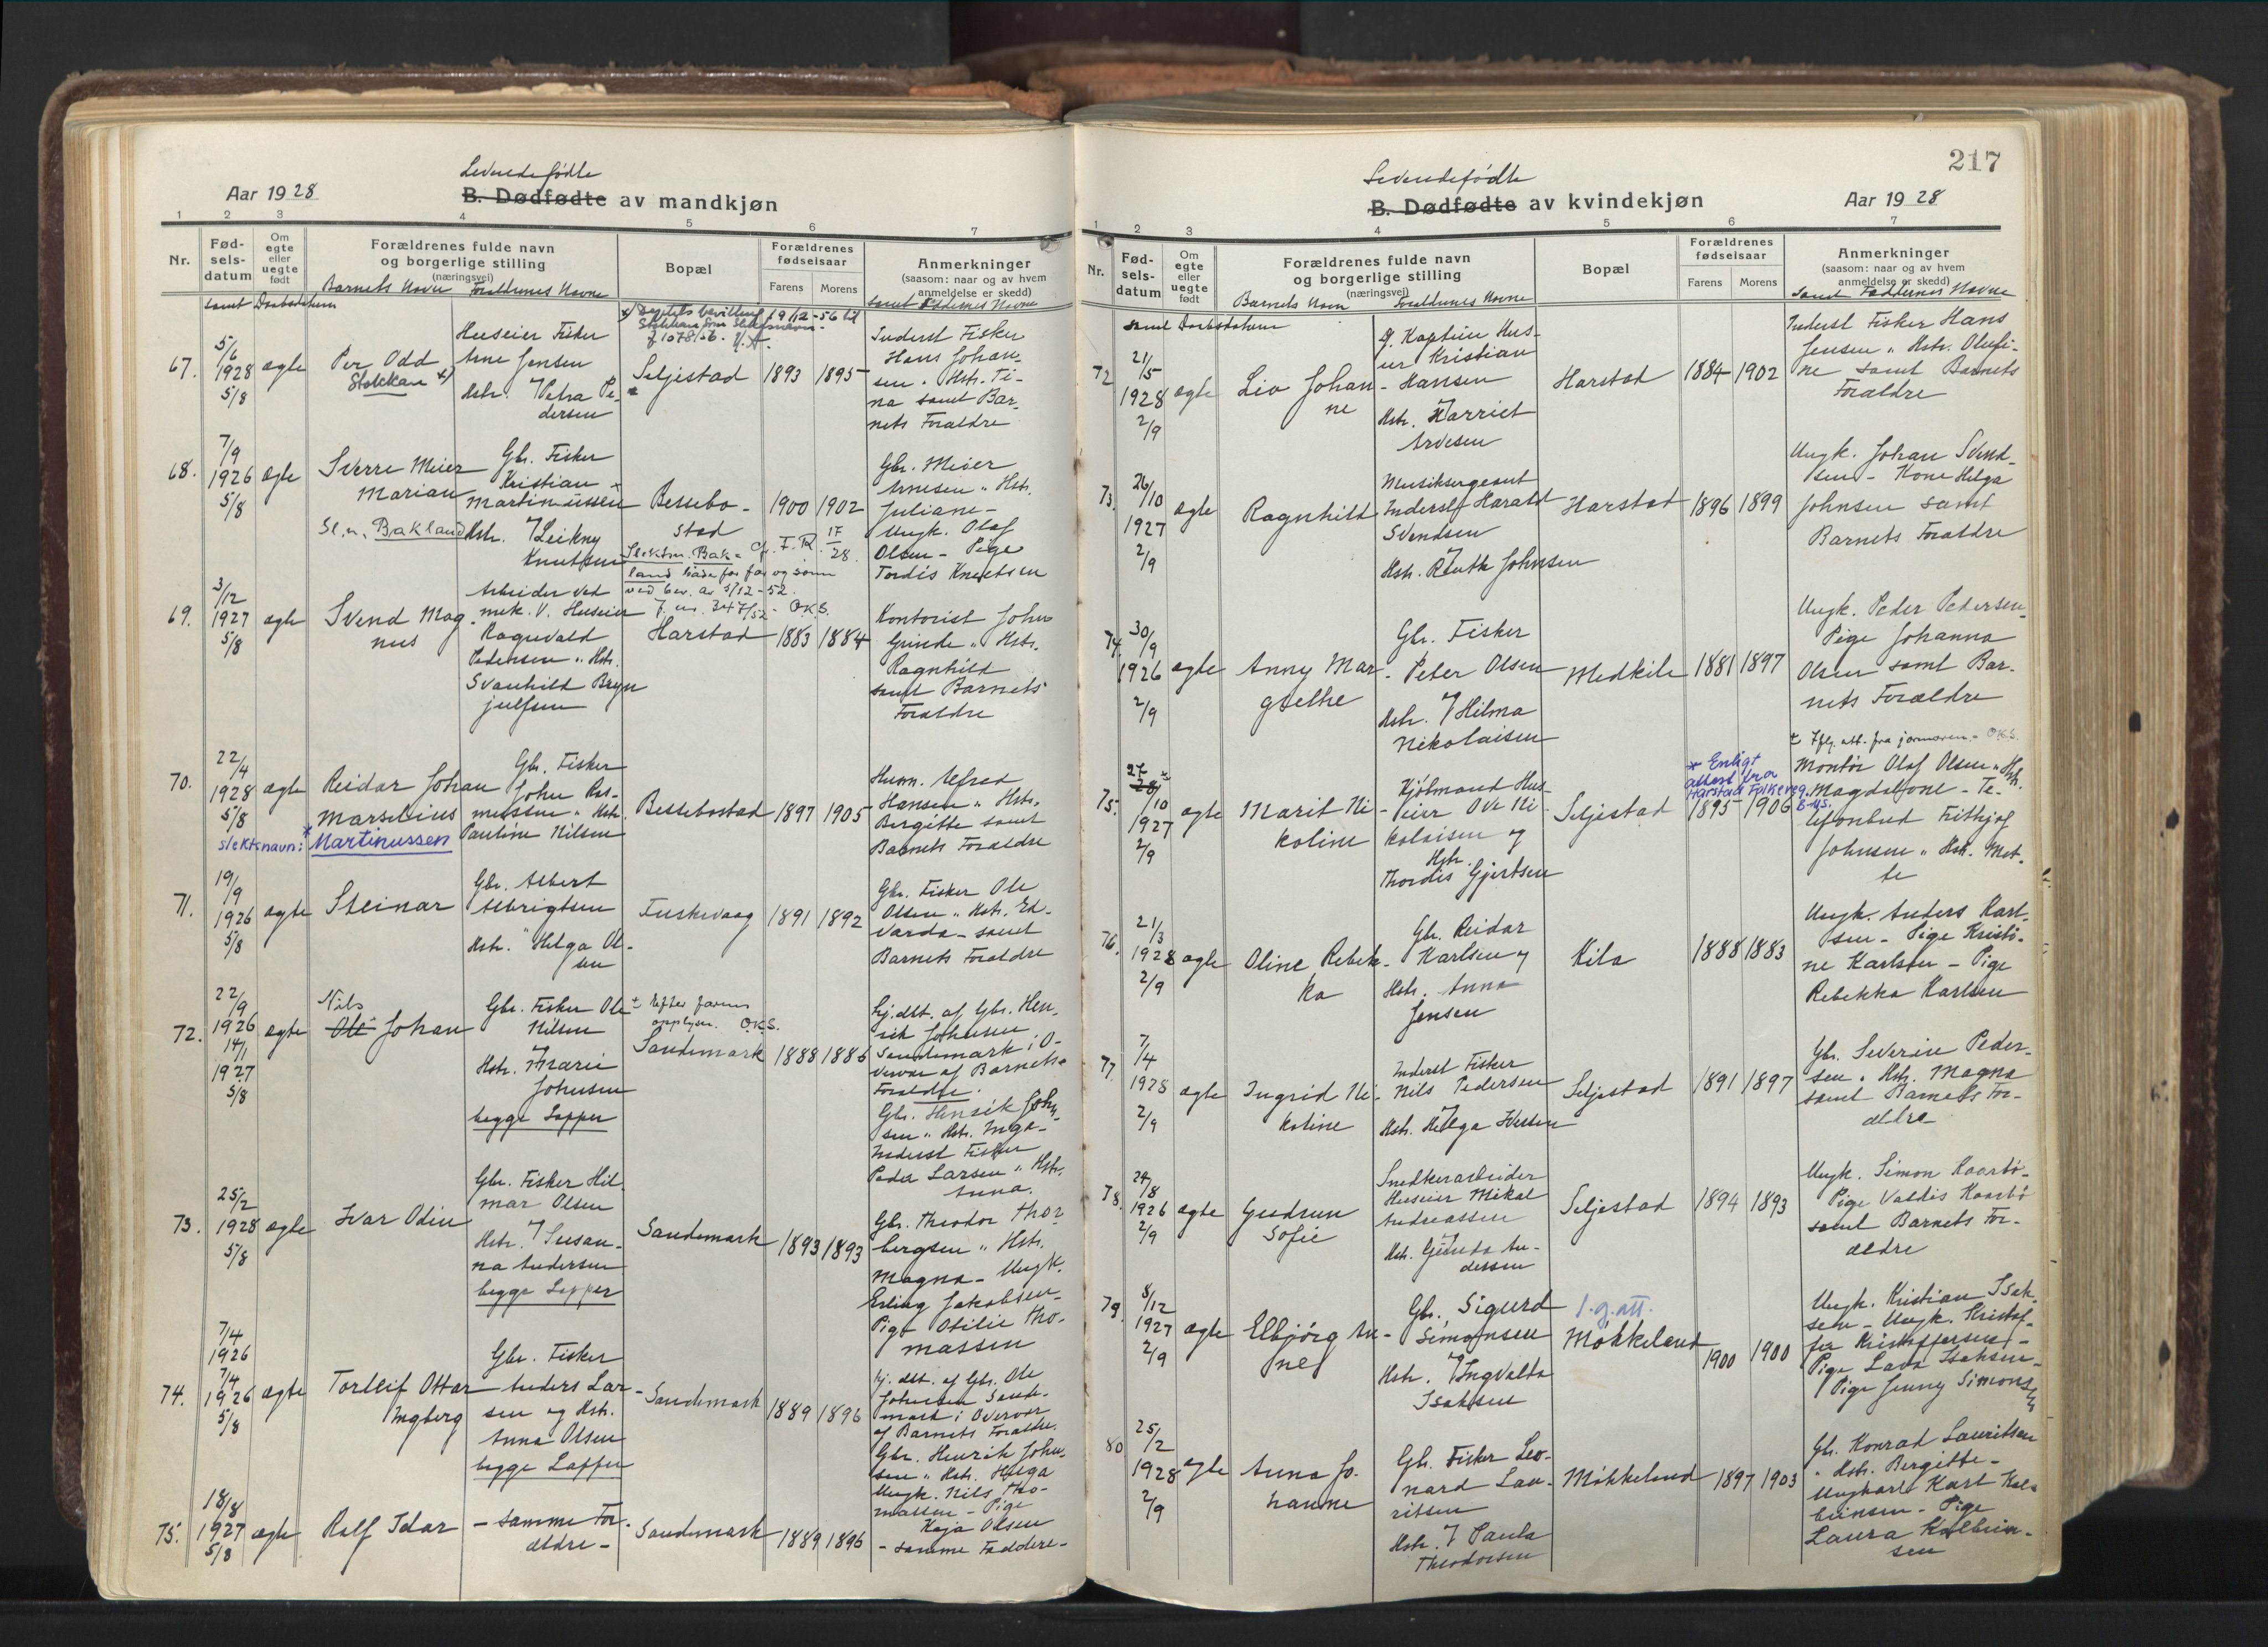 Levendefødte
Aar 1928
B. Dødfødte av mandkjøn
1 2 3 4 5 6 7
Nr.
Fød-
sels-
datum
Om
egte
eller
uegte
født
Forældrenes fulde navn
og borgerlige stilling
(næringsvei)
Barnets Navn Forældrenes Navne
Bopæl
Forældrenes
fødselsaar
Farens Morens
Anmerkninger
(saasom: naar og av hvem
anmeldelse er skedd)
samt Faddernes Navne
samt Daabsdatum
67.
5/6
1928
5/8
ægte
Per Odd
Stokkan x)
Huseier Fisker
Arne Jensen
Hstr. Petra Pe-
dersen
Seljestad
1893 1895
Inderst Fisker
Hans Johan-
sen. Hstr. Ti-
na samt Bar-
nets Forældre
68.
7/9
1926
5/8
ægte
Sverre Meier
Marian
Sl.n. Bakland
Gbr. Fisker
Kristian
Martinussen
Hstr. Leikny
Knutsen
Bessebo-
stad
Slektsn. Bak-
land både for far og sønn
ved bev. av 5/12-52.
J. nr. 347/52 - O.K.S.
Cfr. F.R. 17/28.
1900 1902
Gbr. Meier
Arnesen " Hstr.
Juliane -
Ungk. Olaf
Olsen - Pige
Tordis Knutsen
69.
3/12
1927
5/8
ægte
Svend Mag-
nus
Arbeider ved
mek. V. Huseier
Ragnvald
Pedersen " Hstr.
Svanhild Bryn
julfsen
Harstad
1883 1884
Kontorist John
Grinde " Hstr.
Ragnhild
samt Barnets
Forældre
70.
22/4
1928
5/8
ægte
Reidar Johan
Marselius
slektsnavn: Martinussen
Gbr. Fisker
John Ras-
mussen " Hstr.
Pauline Nilsen
Bessebostad
1897 1905
Husm. Alfred
Hansen " Hstr.
Bergitte samt
Barnets Forældre
71.
19/9
1926
5/8
ægte
Steinar
Gbr. Albert
Albrigtsen
Hstr. " Helga Ol-
sen
Fuskevaag
1891 1892
Gbr. Fisker Ole
Olsen " Hstr. Ed-
varda - samt
Barnets Forældre
72.
22/9
1926
14/1
1927
5/8
ægte
Nils
Ole Johan
Gbr. Fisker Ole
Nilsen
Hstr. Marie
Johnsen
begge Lapper
± Efter farens
opplysn. O.K.S.
Sandemark
1888 1886
Hj.dbt. af Gbr. Hen-
rik Johnsen
Sandemark i O-
vervær af Barnets
Forældre.
Gbr. Henrik John-
sen " Hstr. Inga -
Inderst Fisker
Peder Larsen " Hstr.
Anna.
73.
25/2
1928
5/8
ægte
Ivar Odin
Gbr. Fisker Hil-
mar Olsen
Hstr. Susan-
na Andersen
begge Lapper
Sandemark
1893 1893
Gbr. Theodor Thor-
bergsen " Hstr.
Magna - Ungk.
Erling Jakobsen -
Pige Otilie Tho-
massen
74.
7/4
1926
7/4
1926
5/8
ægte
Torleif Ottar
Ingberg
Gbr. Fisker
Anders Lar-
sen og Hstr.
Anna Olsen
begge Lapper
Sandemark
1889 1896
Hj. dbt. af Gbr. Ole
Johnsen Sande-
mark i Overvær
af Barnets Forældre.
Gbr. Henrik John-
sen " Hstr. Helga
Ungk. Nils Tho-
massen - Pige
Kaja Olsen
75.
18/8
1927
5/8
ægte
Ralf Idar
- samme For-
ældre -
Sandemark
1889 1896
- samme Faddere -
217
Levendefødte
B. Dødfødte av kvindekjøn
Aar 1928
1 2 3 4 5 6 7
Nr.
Fød-
sels-
datum
Om
egte
eller
uegte
født
Forældrenes fulde navn
og borgerlige stilling
(næringsvei)
Barnets Navn Forældrenes Navne
Bopæl
Forældrenes
fødselsaar
Farens Morens
Anmerkninger
(saasom: naar og av hvem
anmeldelse er skedd)
samt Faddernes Navne
samt Daabsdatum
72
21/5
1928
2/9
ægte
Liv Johan-
ne
Kaptein Hus-
eier Kristian
Hansen
Hstr. Harriet
Arvesen
Harstad
1884 1902
Inderst Fisker Hans
Jensen " Hstr. Olufi-
ne samt Barnets
Forældre
73.
26/10
1927
2/9
ægte
Ragnhild
Musiksergeant
Inderst Harald
Svendsen
Hstr. Ruth Johnsen
Harstad
1896 1899
Ungk. Johan Svend-
sen - Kone Helga
Johnsen samt
Barnets Forældre
74.
30/9
1926
2/9
ægte
Anny Mar-
grethe
Gbr. Fisker
Peter Olsen
Hstr. Hilma
Nikolaisen
Medkila
1881 1897
Ungk. Peder Pedersen
Pige Johanna
Olsen samt Bar-
nets Forældre
75.
27/10
1927
2/9
ægte
Marit Ni-
koline
Kjøbmand Hus-
eier Ove Ni-
kolaisen og
Hstr.
Thordis Gjertsen
Seljestad
1895 1906
* Enligt
attest fra
Harstad Folkereg.
± Iflg. att. fra jormoren - O.K.S.
Montør Olaf Olsen " Hstr.
Magdalone - Te-
lefonbud Fritjof
Johnsen " Hstr. Met-
te
76.
21/3
1928
2/9
ægte
Oline Rebek-
ka
Gbr. Reidar
Karlsen og
Hstr. Anna
Jensen
Kila
1888 1883
Ungk. Anders Karl-
sen - Pige Kristi-
ne Karlsen - Pige
Rebekka Karlsen
77.
7/4
1928
2/9
ægte
Ingrid Ni-
koline
Inderst Fisker
Nils Pedersen
Hstr. Helga Iversen
Seljestad
1891 1897
Gbr. Severin Peder-
sen " Hstr. Magna
samt Barnets For-
ældre
78.
24/8
1926
2/9
ægte
Gudrun
Sofie
Snedkerarbeider
Huseier Mikal
Andreassen
Hstr. Gjerda An-
dersen
Seljestad
1894 1893
Ungk. Simon Kaarbø -
Pige Valdis Kaarbø
samt Barnets For-
ældre
79.
8/12
1927
2/9
ægte
Elbjørg An-
ne
Gbr. Sigurd
Simonsen
Hstr. Ingvalda
Isaksen
1.g.att.
Møkkeland
1900 1900
Ungk. Kristian Isak-
sen - Ungk. Kristof-
fer Kristoffersen -
Pige Lava Isaksen -
Pige Jenny Simonsen
80
25/2
1928
2/9
ægte
Anna Jo-
hanne
Gbr. Fisker Leo-
nard Lau-
ritsen
Hstr. Paula
Theodorsen
Møkkeland
1897 1903
Gbr. Konrad Lauritsen
" Hstr. Bergitte -
Ungkarl Karl Kol-
beinsen - Pige
Laura Kolbein-
sen